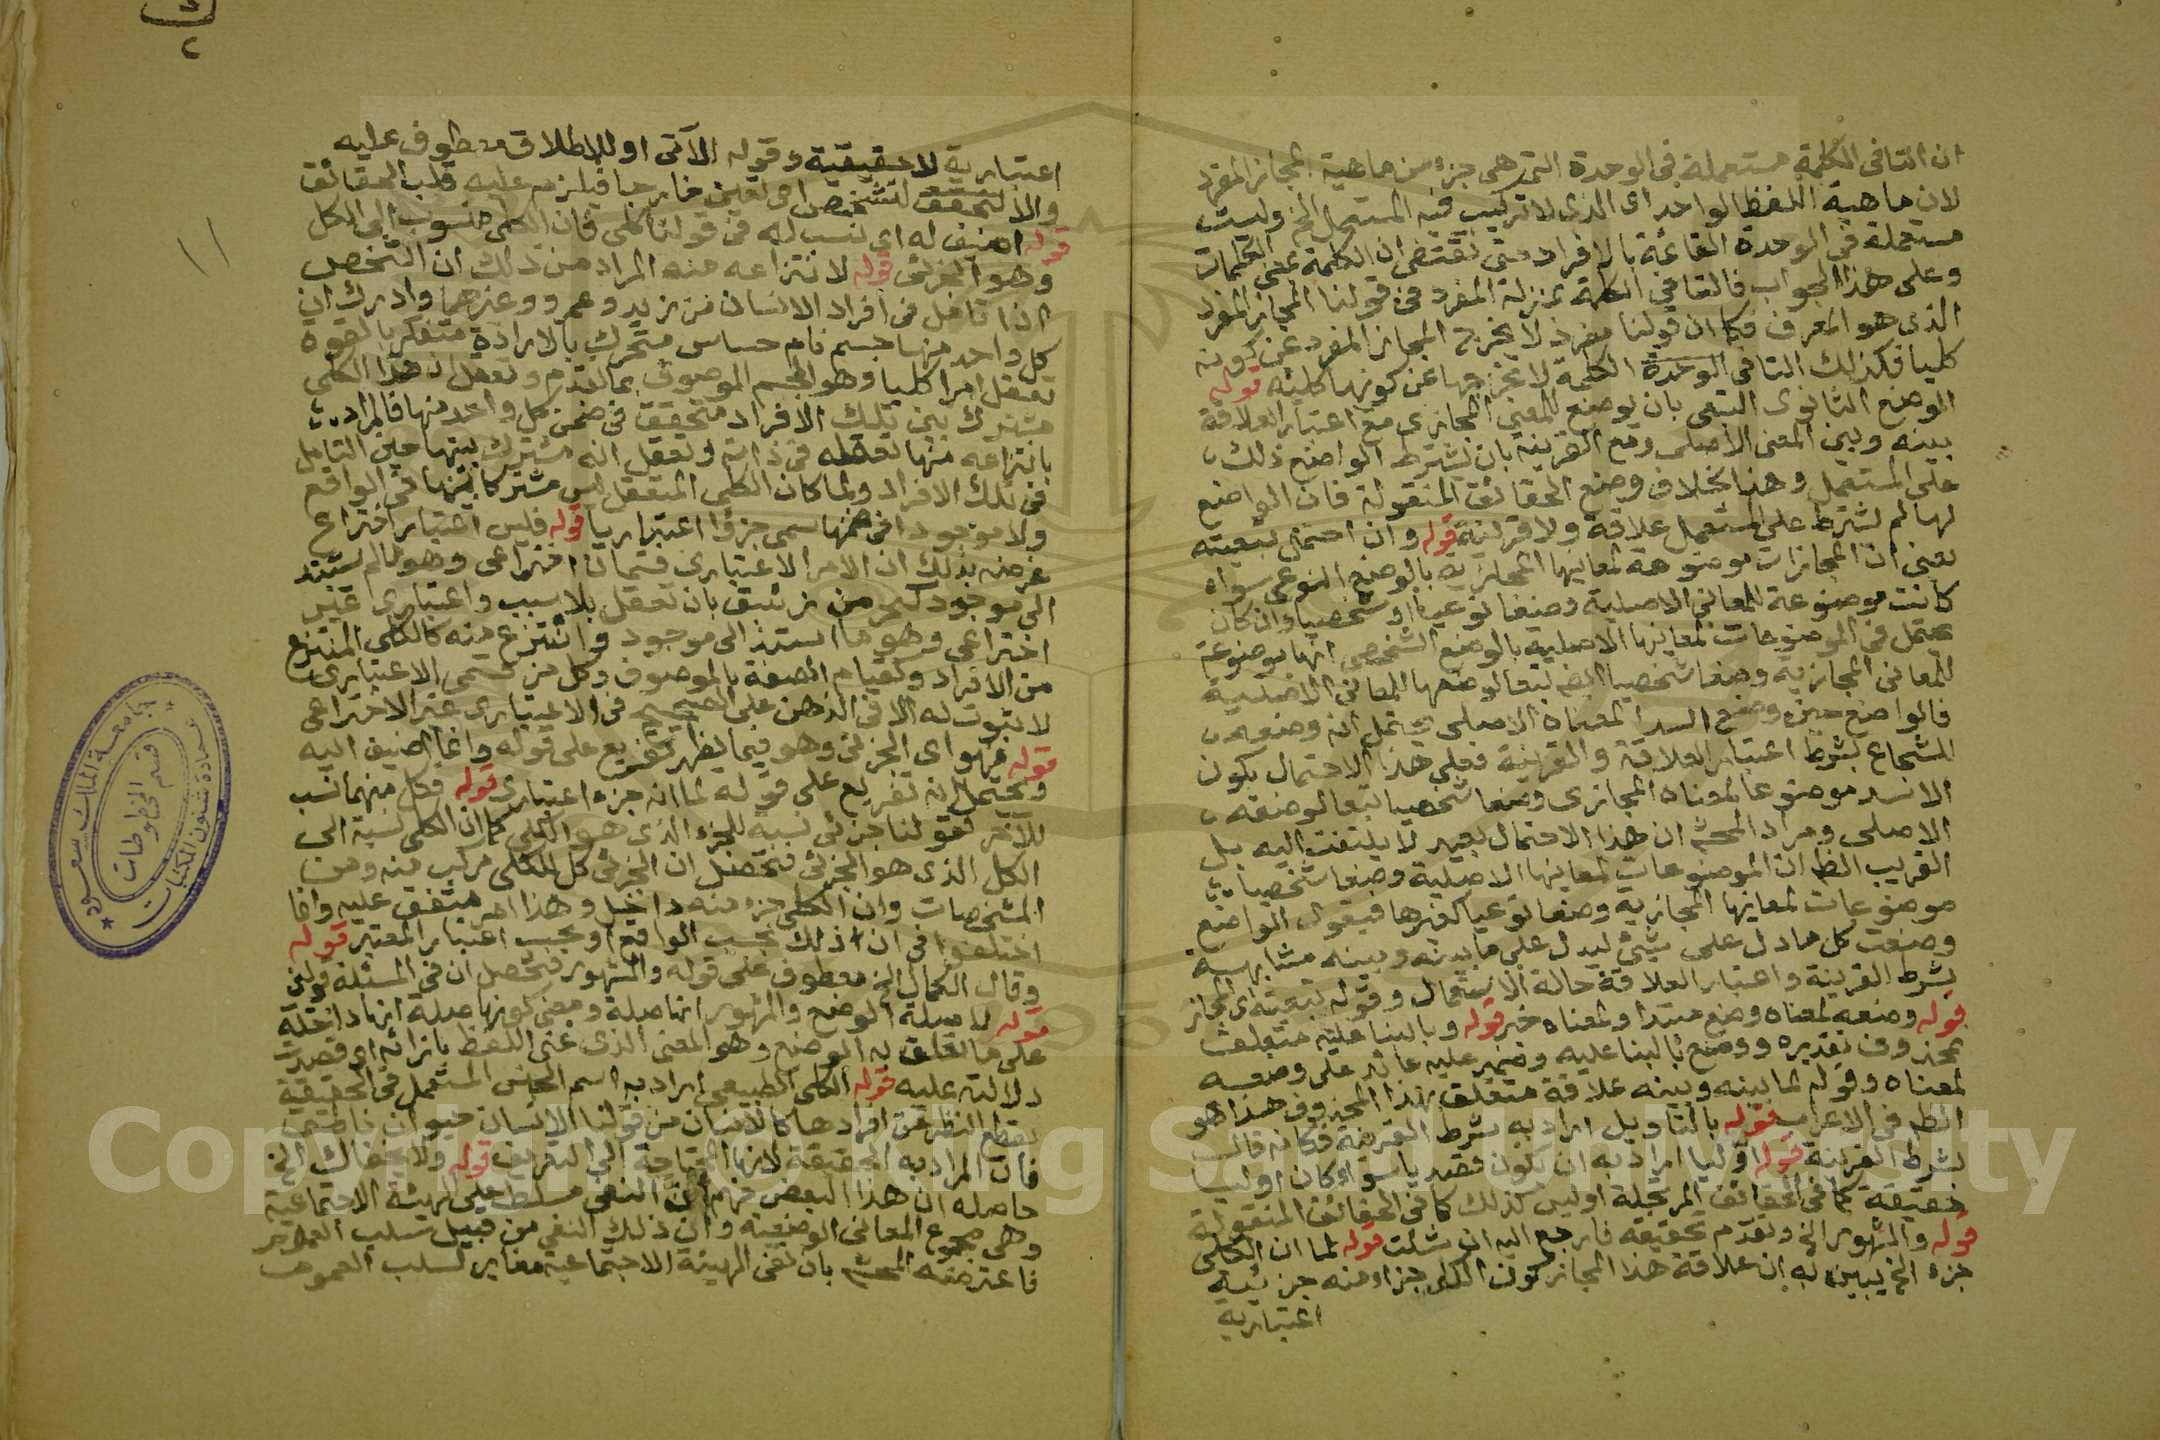 ان التا في الكلمة مستعملة في الوحدة التي هي جزء من ماهية المجاز المفرد
لان ماهية اللفظ الواحد اي الذي لا تركيب فيه المستعمل الخ وليست
مستعملة في الوحدة القائمة بالافراد حتى تقتضي ان الكلمة بمعنى الكلمات
وعلى هذا الجواب فالتا في الكلمة بمنزلة المفرد في قولنا المجاز المفرد
الذي هو المعرف فكما ان قولنا مفرد لا يخرج المجاز المفرد عن كونه
كليا فكذلك التا في الوحدة الكلمة لا يخرجها عن كونها كلية قوله
الوضع الثانوي التبعي بان يوضع للمعنى المجازي مع اعتبار العلاقة
بينه وبين المعنى الاصلي ومع القرينة بان يشترط الواضع ذلك
على المستعمل وهذا بخلاف وضع الحقائق المنقولة فان الواضع
لها لم يشترط على المستعمل علاقة ولا قرينة قوله وان احتمل تبعيته
يعني ان المجازات موضوعة لمعانيها المجازية بالوضع النوعي سواء
كانت موضوعة للمعاني الاصلية وضعا نوعيا او شخصيا وان كان
يحتمل في الموضوعات لمعانيها الاصلية بالوضع الشخصي انها موضوعة
للمعاني المجازية وضعا شخصيا ايضا تبعا لوضعها للمعاني الاصلية
فالواضع حين وضع اسدا لمعناه الاصلي يحتمل انه وضعه
للشجاع بشرط اعتبار العلاقة والقرينة فعلى هذا الاحتمال يكون
الاسد موضوعا لمعناه المجازي وضعا شخصيا تبعا لوضعه
الاصلي ومراد المحشي ان هذا الاحتمال بعيد لا يلتفت اليه بل
القريب الظ ان الموضوعات لمعانيها الاصلية وضعا شخصيا
موضوعات لمعانيها المجازية وضعا نوعيا كغيرها فيقول الواضع
وضعت كل ما دل على شيئ ليدل على ما بينه وبينه مشابهة
بشرط القرينة واعتبار العلاقة حالة الاستعمال وقوله تبعيته اي المجاز
قوله وضعه لمعناه وضع مبتدا ولمعناه خبر قوله وبالبنا عليه متعلق
بمحذوف تقديره ووضع بالبنا عليه وضمير عليه عائد على وضعه
لمعناه وقوله لما بينه وبينه علاقة متعلق بهذا المحذوف هذا هو
الظ في الاعراب قوله بالتاويل اراد به بشرط القرينة فكانه قال
بشرط القرينة قوله اوليا اراد به ان يكون قصديا سواء كان اوليا
حقيقة كما في الحقائق المرتجلة او ليس كذلك كما في الحقائق المنقولة
قوله والمشهور الخ وتقدم تحقيقه فارجع اليه ان شئت قوله لما ان الكلي
جزء الخ يبين به ان علاقة هذا المجاز كون الكلي جزاء منه جزئية
اعتبارية
اعتبارية لا حقيقية وقوله الآتي او للاطلاق معطوف عليه
والا لتحقق لتشخص اي تعين خارجا فيلزم عليه قلب الحقائق
قوله اضيف له اي نسب له في قولنا كلي فان الكلي منسوب الى الكل
وهو الجزئي قوله لانتزاعه منه المراد من ذلك ان الشخص
اذا تامل في افراد الانسان من زيد وعمرو وغيرهما وادرك ان
كل واحد منها جسم نام حساس متحرك بالارادة متفكر بالقوة
تعقل امرا كليا وهو الجسم الموصوف بما تقدم وتعقل ان هذا الكلي
مشترك بين تلك الافراد متحقق في ضمن كل واحد منها فالمراد
بانتزاعه منها تعقله في ذاته وتعقل انه مشترك بينها حين التامل
في تلك الافراد ولما كان الكلي المتعقل ليس مشتركا بينها في الواقع
ولا موجودا في ضمنها سمي جزؤا اعتباريا قوله فليس اعتبارا اختراعي
غرضه بذلك ان الامر الاعتباري قسمان اختراعي وهو ما لم يستند
الى موجود كبحر من زئبق بان تعقل بلا سبب واعتباري غير
اختراعي وهو ما استند الى موجود وانتزع منه كالكلي المنتزع
من الافراد وكقيام الصفة بالموصوف وكل من قسمي الاعتباري
لا ثبوت له الا في الذهن على الصحيح في الاعتباري غير الاختراعي
قوله فهو اي الجزئي وهو فيما يظهر تفريع على قوله وانما اضيف اليه
ويحتمل انه تفريع على قوله لما انه جزء اعتباري قوله فكل منهما نسب
للآخر فقولنا جزئي نسبة للجزء الذي هو الكلي كما ان الكلي نسبة الى
الكل الذي هو الجزئي فتحصل ان الجزئي كل للكلي مركب منه ومن
المشخصات وان الكلي جزء منه داخل وهذا امر متفق عليه وانما
اختلفوا في ان ذلك بحسب الواقع او بحسب اعتبار المعتبر قوله
وقال الكمال الخ معطوف على قوله والمشهور فتحصل ان في المسئلة قولين
قوله لا صلة الوضع والمشهور انها صلة ومعنى كونها صلة انها داخلة
على ما تعلق به الوضع وهو المعنى الذي عين اللفظ بازائه او قصدت
دلالته عليه قوله الكلي الطبيعي اراد به اسم الجنس المستعمل في الحقيقة
بقطع النظر عن افرادها كالانسان من قولنا الانسان حيوان ناطق
فان المراد به الحقيقة لانها المحتاجة الى التعريف قوله ولا يخفاك الخ
حاصله ان هذا البعض فهم ان النفي مسلط على الهيئة الاجتماعية
وهي مجموع المعاني الوضعية وان ذلك النفي من قبيل سلب العموم
فاعترضه المحشي بان نفي الهيئة الاجتماعية مغاير لسلب العموم
١١
جامعة الملك سعود
قسم المخطوطات
عمادة شئون المكتبات
Copyright © King Saud University